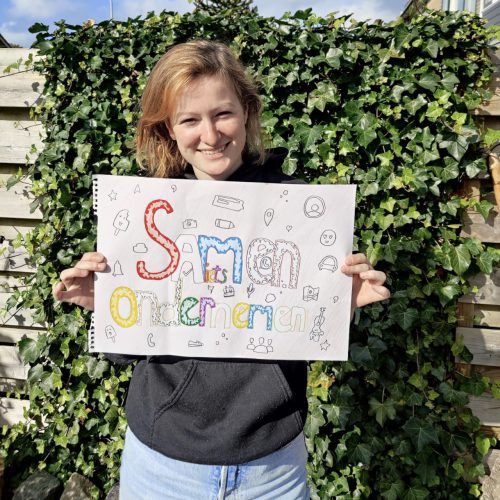 Samen
iets
Ondernemen